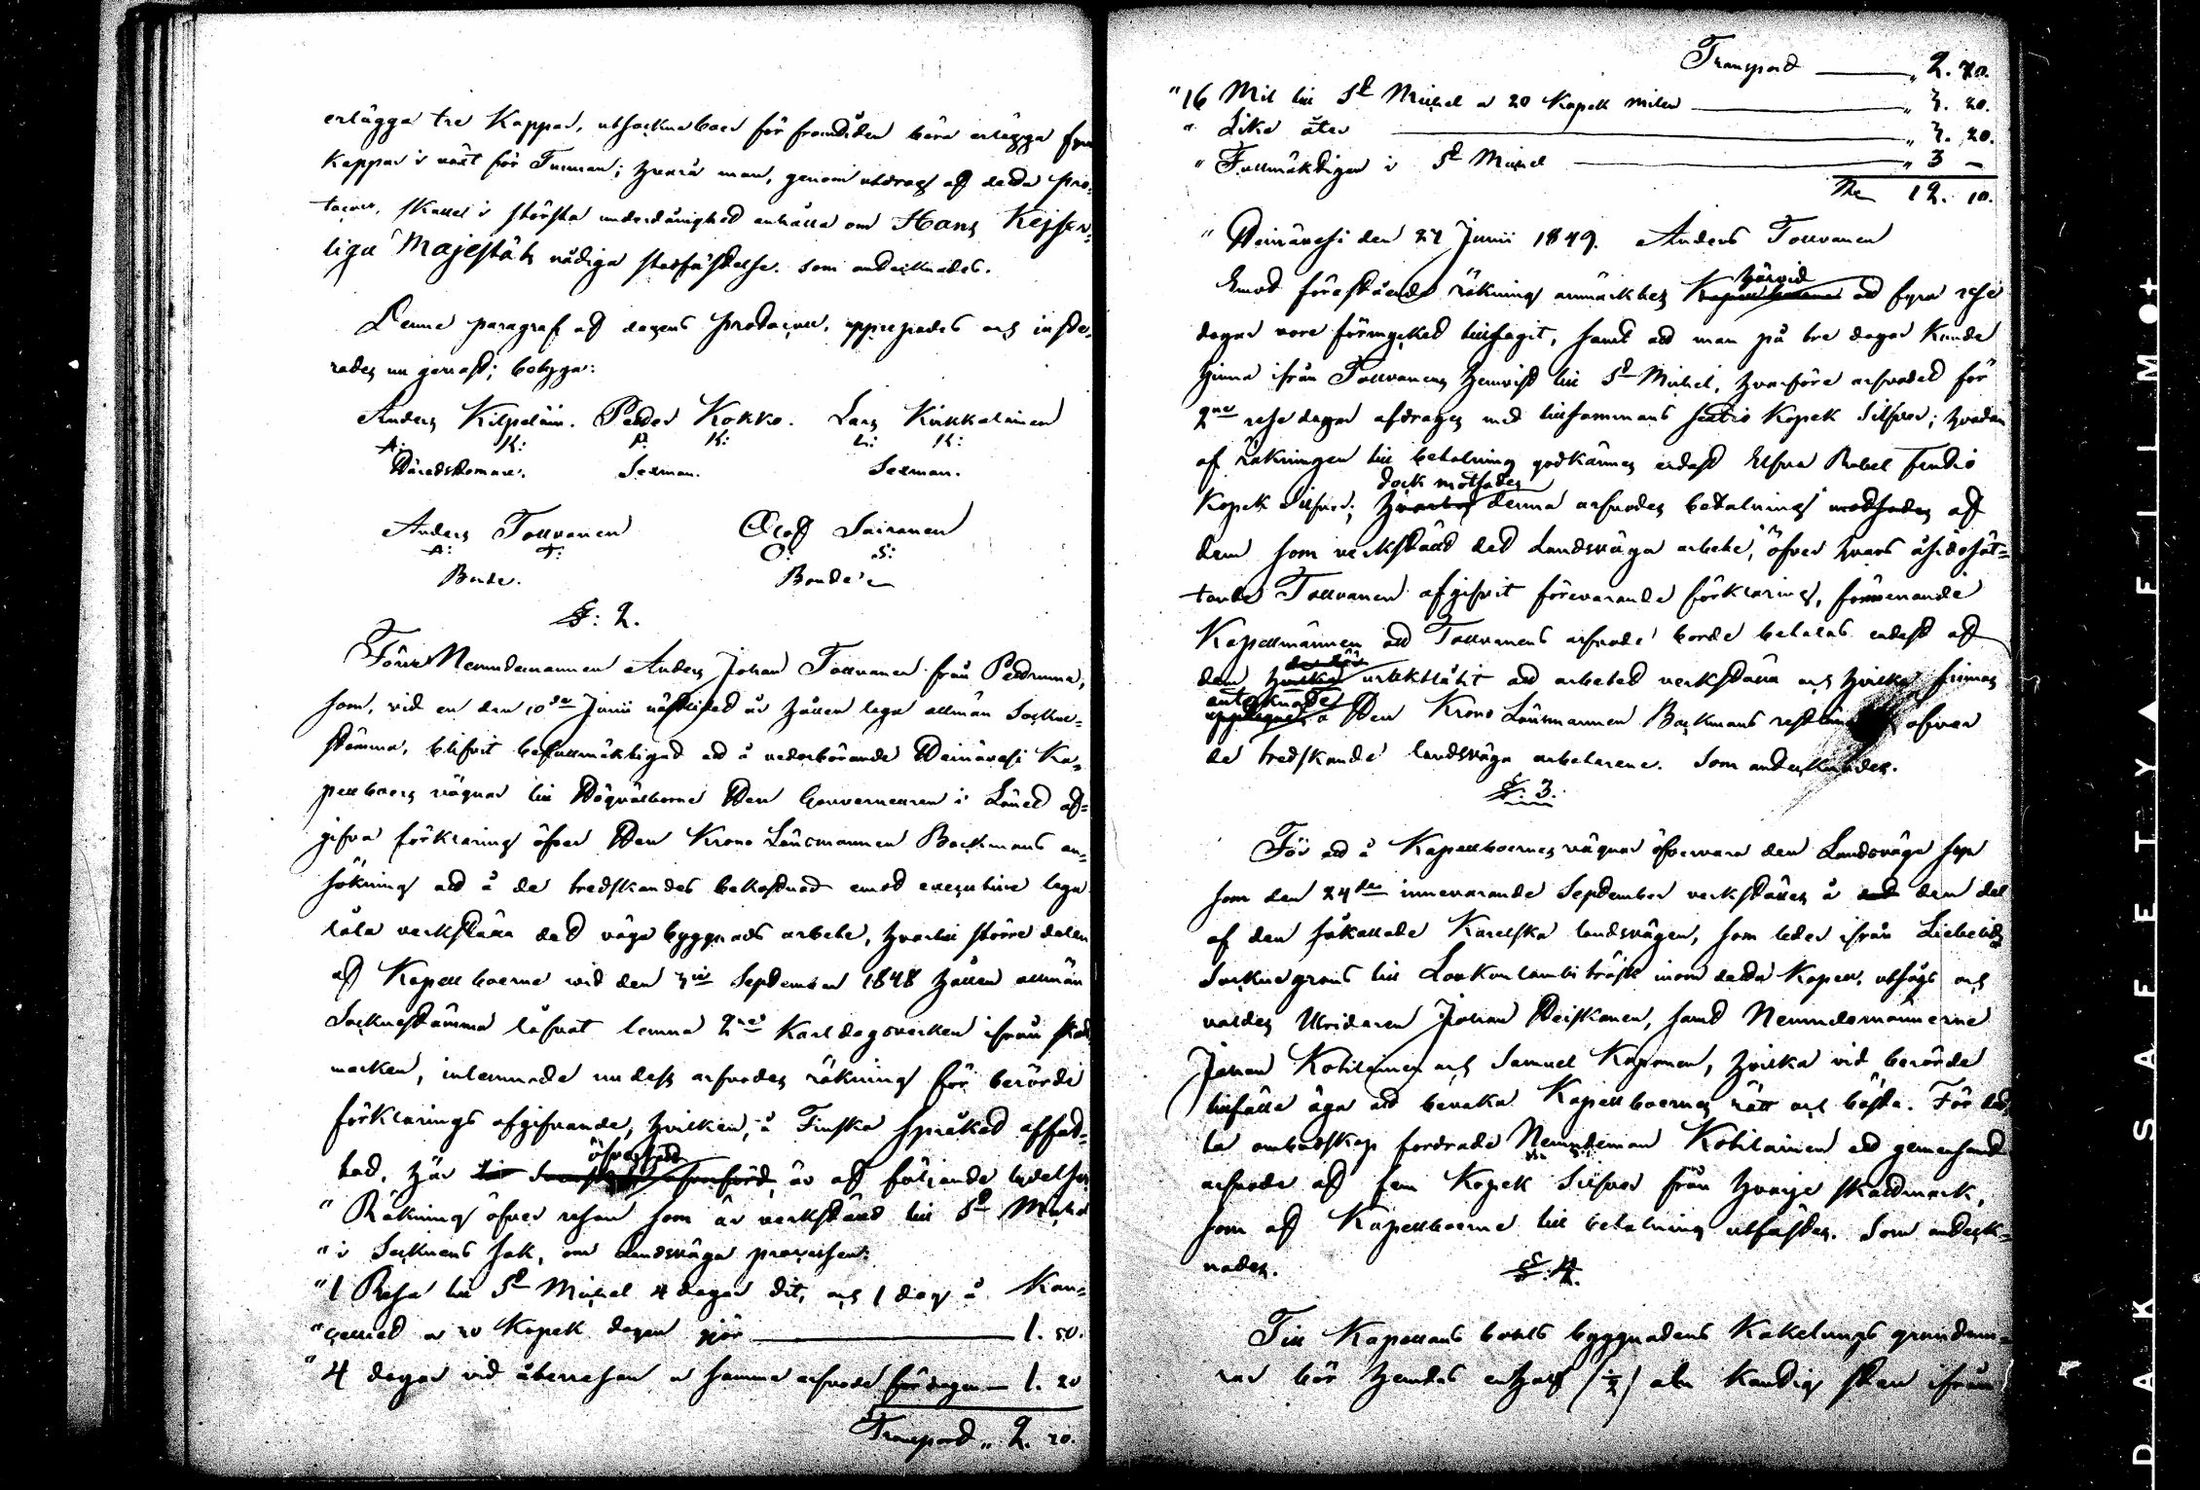 erlägga tre Kappar, utsockneboer för framtiden böra erlägga fyra
Kappar i vört för Tunnan; hvarå man, genom utdrag af detta Pro-
tocoll, skulle i största underdånighet anhålla om Hans Kejser-
liga Majestäts nådiga stadfästelse. Som antecknades.
Denne paragraf af dagens Protocoll, upprepades och juste-
rades nu genast; betyga:
Anders Kilpeläin. Petter Kokko. Lars Kirkkalainen
A: K: P. K: L: K:
Häradsdomare. Sexman. Sexman.
Anders Tollvanen Olof Sairanen
A: T: O: S:
Bonde. Bonde
§: 2.
Förre Nemndemannen Anders Johan Tollvanen från Pettruma,
som, vid en den 10de Junii nästledet år hållen laga allmän Sockne-
stämma, blifvit befullmäktigad att å vederbörande Heinävesi Ka-
pellboers vägnar till Högvälborne Herr Gouverneuren i Länet af-
gifva förklaring öfver Herr Krono Länsmannen Backmans an-
sökning att å de tredskandes bekostnad emot executive lega
låta verkställa det väga byggnads arbete, hvartill större delen
af Kapellboerne vid den 3die September 1848 hållen allmän
Socknestämma låfvat lemna 2ne Karldagsverken ifrån skatt
marken, inlemnade nu dess arfvodes räkning för berörde
förklarings afgifvande, hvilken, å Finska språket affat-
tad, här öfversatt är af följande lydelse
" Räkning öfver resan som är verkstäld till St Michel
" i Socknens sak, om Landsväga processen:
" 1 Resa till St Michel 4 dagar dit, och 1 dag å Kan-
" celliet a 30 Kopek dagen gjör 1. 50.
" 4 dagar vid återresan a samma arfvode för dagen 1. 20
Transport " 2. 70.
Transport " 2. 70.
" 16 Mil till St Michel a 20 Kopek milen " 3. 20.
" Lika åter " 3. 20.
" Fullmäktigen i St Michel " 3 –
12. 10.
" Heinävesi den 27 Junii 1849. Anders Tollvanen
Emot förestående räkning anmärktes härvid att fyra rese
dagar vore förmycket tilltagit, samt att man på tre dagar kunde
hinna ifrån Tollvanens hemvist till St Michel, hvarföre arfvodet för
2ne rese dagar afdrages med tillsammans sextio Kopek Silfver; hvadan
af räkningen till betalning godkännes endast Elfva Rubel femtio
dock motsades
Kopek Silfver; denna arfvodes betalning af
dem som verkstäld det Landsväga arbete, öfver hvars åsidosät-
tande Tollvanen afgifvit förevarande förklaring, förmenande
Kapellmännen att Tollvanens arfvode borde betalas endast af
dem urlåtit att arbetet verkställa och hvilka finnas
antecknade å Herr Krono Länsmannen Backmans öfver
de tredskande landsväga arbetarene. Som antecknades.
§: 3.
För att å Kapellboernes vägnar öfvervara den Landsväga syn
som den 24de innevarande September verkställes å den del
af den såkallade Karelska landsvägen, som leder ifrån Liebelits
Sockne gräns till Loukonlambi träsk inom detta Kapell, utsågs och
valdes Utridaren Johan Heiskanen, samt Nemndemännerne
Johan Kohilainen och Samuel Koponen, hvilka vid berörde
tillfälle äga att bevaka Kapellboernes rätt och bästa. För det-
ta ombudskap fordrade Nemndeman Kohilainen ett gemensamt
arfvode af fem Kopek Silfver från hvarje skattmark,
som af Kapellboerne till betalning utfästes. Som anteck-
nades.
§: 4.
Till Kapellans bohls byggnadens Kakelungs grundmu-
rar bör hemtas en half (½) aln kandig sten ifrån
DAK SAFETY▲FILM●+